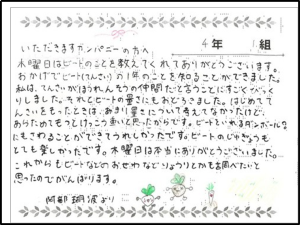 いただきますカンパニーの方へ
4年 1組
木曜日はビートのことを教えてくれてありがとうございます。
おかげでビート(てんさい)の1年のことを知ることができました。
私は、てんさいがほうれんそうの仲間だと言うことにすごくびっく
りしました。それとビートの重さにもおどろきました。はじめてて
んさいをもったときは、あまり重さについて考えてなかったけど、
あらためてもつとけっこう重いと思ったからです。ビートといれるダンボール
にもさわることができてうれしかったです。ビートのじゅぎょうも
とても楽しかったです。木曜日は本当にありがとうございました。
これからもビートなどのおせわなどりょうりとかも調べたいと
思ったのでがんばります。
阿部 より